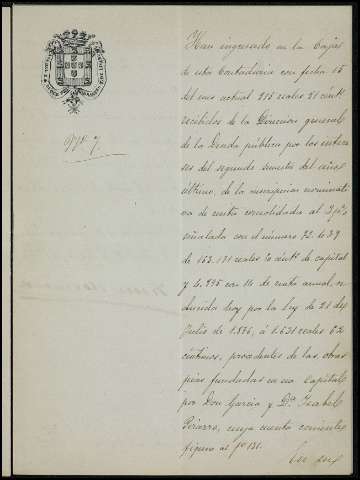 Nº 7.
Han ingresado en la Caja
de esta Contaduria con fecha 15
del mes actual 815 reales 81 cént.
recibidos de la Direccion general
de la Deuda pública por los intere
ses del segundo semestre del año
último, de la inscripcion nominati
va de renta consolidada al 3 p%
señalada con el número
de 163.131 reales cént. de capital
y de renta anual, re
ducida hoy por la ley de 21 de
Julio de 1.876, á 1.631 reales 62
centimos, procedentes de las obras
pias fundadas en esa Capital
por Don Garcia y Dª Isabel
Pizarro, cuya cuenta corriente
figura al fº 131.